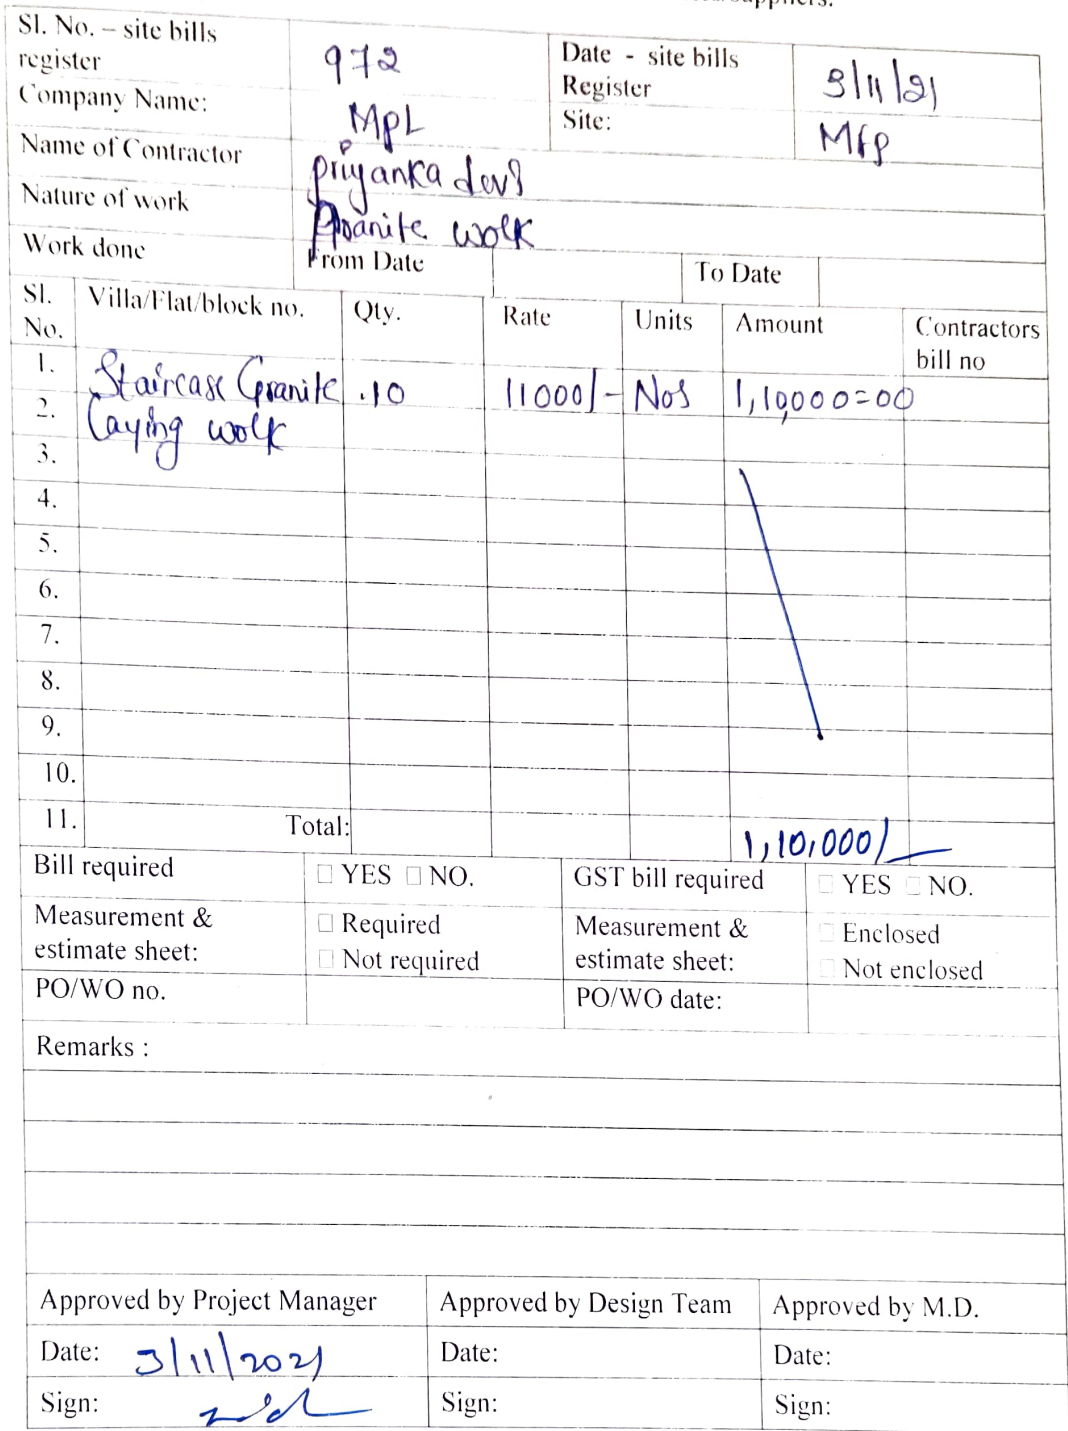 Sl. No. – site bills register 972 Date - site bills Register 3/11/21
Company Name: MPL Site: MFP
Name of Contractor Priyanka devi
Nature of work Granite work
Work done From Date To Date
Sl. No. Villa/Flat/block no. Qty. Rate Units Amount Contractors bill no
1. Staircase Granite .10 11000/- Nos 1,10,000=00
2. Laying work
3.
4.
5.
6.
7.
8.
9.
10.
11. Total: 1,10,000/-
Bill required □ YES □ NO. GST bill required □ YES □ NO.
Measurement & estimate sheet: □ Required □ Not required Measurement & estimate sheet: □ Enclosed □ Not enclosed
PO/WO no. PO/WO date:
Remarks :
Approved by Project Manager Approved by Design Team Approved by M.D.
Date: 3/11/2021 Date: Date:
Sign: Sign: Sign: